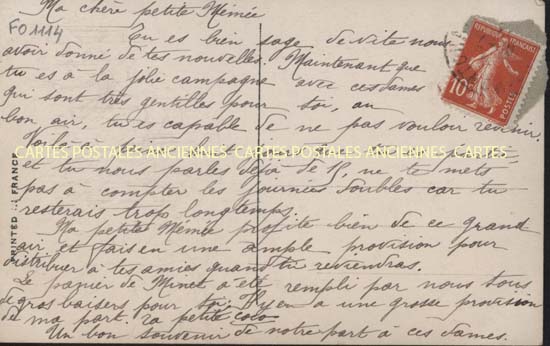 Ma chère petite Mémée
FO1114
Tu es bien sage de vite nous
avoir donné de tes nouvelles. Maintenant que
tu es à la jolie campagne avec ces dames
qui sont très gentilles pour toi, au
bon air, tu es capable de ne pas vouloir revenir.
Voilà à peine huit
CARTES POSTALES ANCIENNES CARTES POSTALES ANCIENNES CARTES
et tu nous parles déjà de ne te mets
pas à compter les journées car tu
resterais trop longtemps.
Ma petite Mémée profite bien de ce grand
air et fais en une ample provision pour
distribuer à tes amies quand tu reviendras.
Le papier de Minet a été rempli par nous tous
de gros baisers pour toi. Il y en a une grosse provision
de ma part. Ta petite coco
Un bon souvenir de notre part à ces dames.
PRINTED IN FRANCE
RÉPUBLIQUE FRANÇAISE
10
POSTES